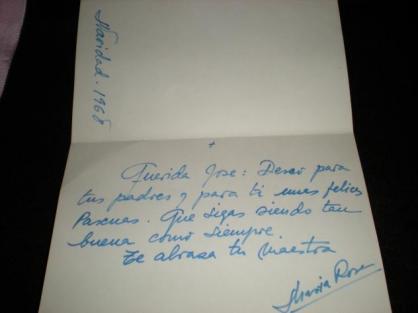 Navidad. 1968
+
Querida Jose: Deseo para
tus padres y para ti unas felices
Pascuas. Que sigas siendo tan
buena como siempre.
Te abraza tu maestra
Maria Rosa